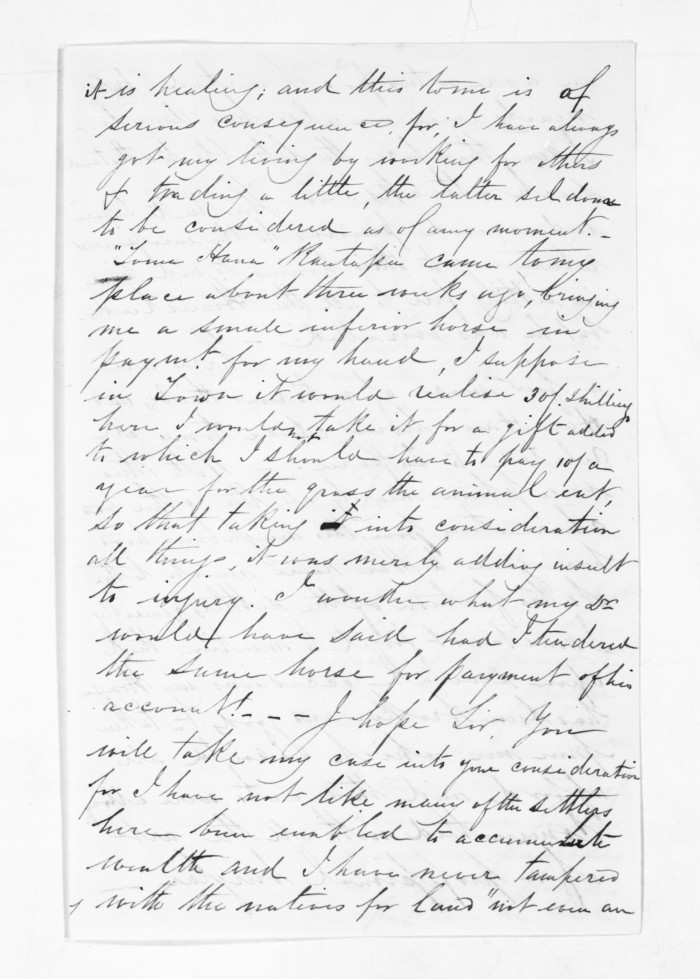 it is healing; and this to me is of
serious consequence, for, I have always
got my living by working for others
& trading a little, the latter seldom
to be considered as of any moment. -
"Towa Hana" Rautapu came to my
place about three weeks ago, bringing
me a smale inferior horse in
paymt. for my hand, I suppose
in Town it would realise 30/. shillings
here I would not take it for a gift added
to which I should have to pay 10/ a
year for the grass the animal eat,
so that taking it into consideration
all things, it was merely adding insult
to injury. I wonder what my Dr
would have said had I tendered
the same horse for payment of his
account! - - - I hope Sir, You
will take my case into your consideration
for I have not like many of the settlers
here been enabled to accumulate
wealth and I have never tampered
with the natives for land "not even an